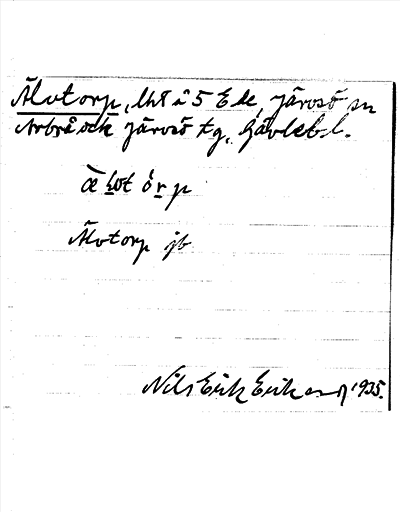 Älvtorp, lht å 5 Ede, Järvsö sn
Arbrå och Järvsö tg, Gävlebl.
Älvtorp jb
Nils Erik Eriksson 1935.